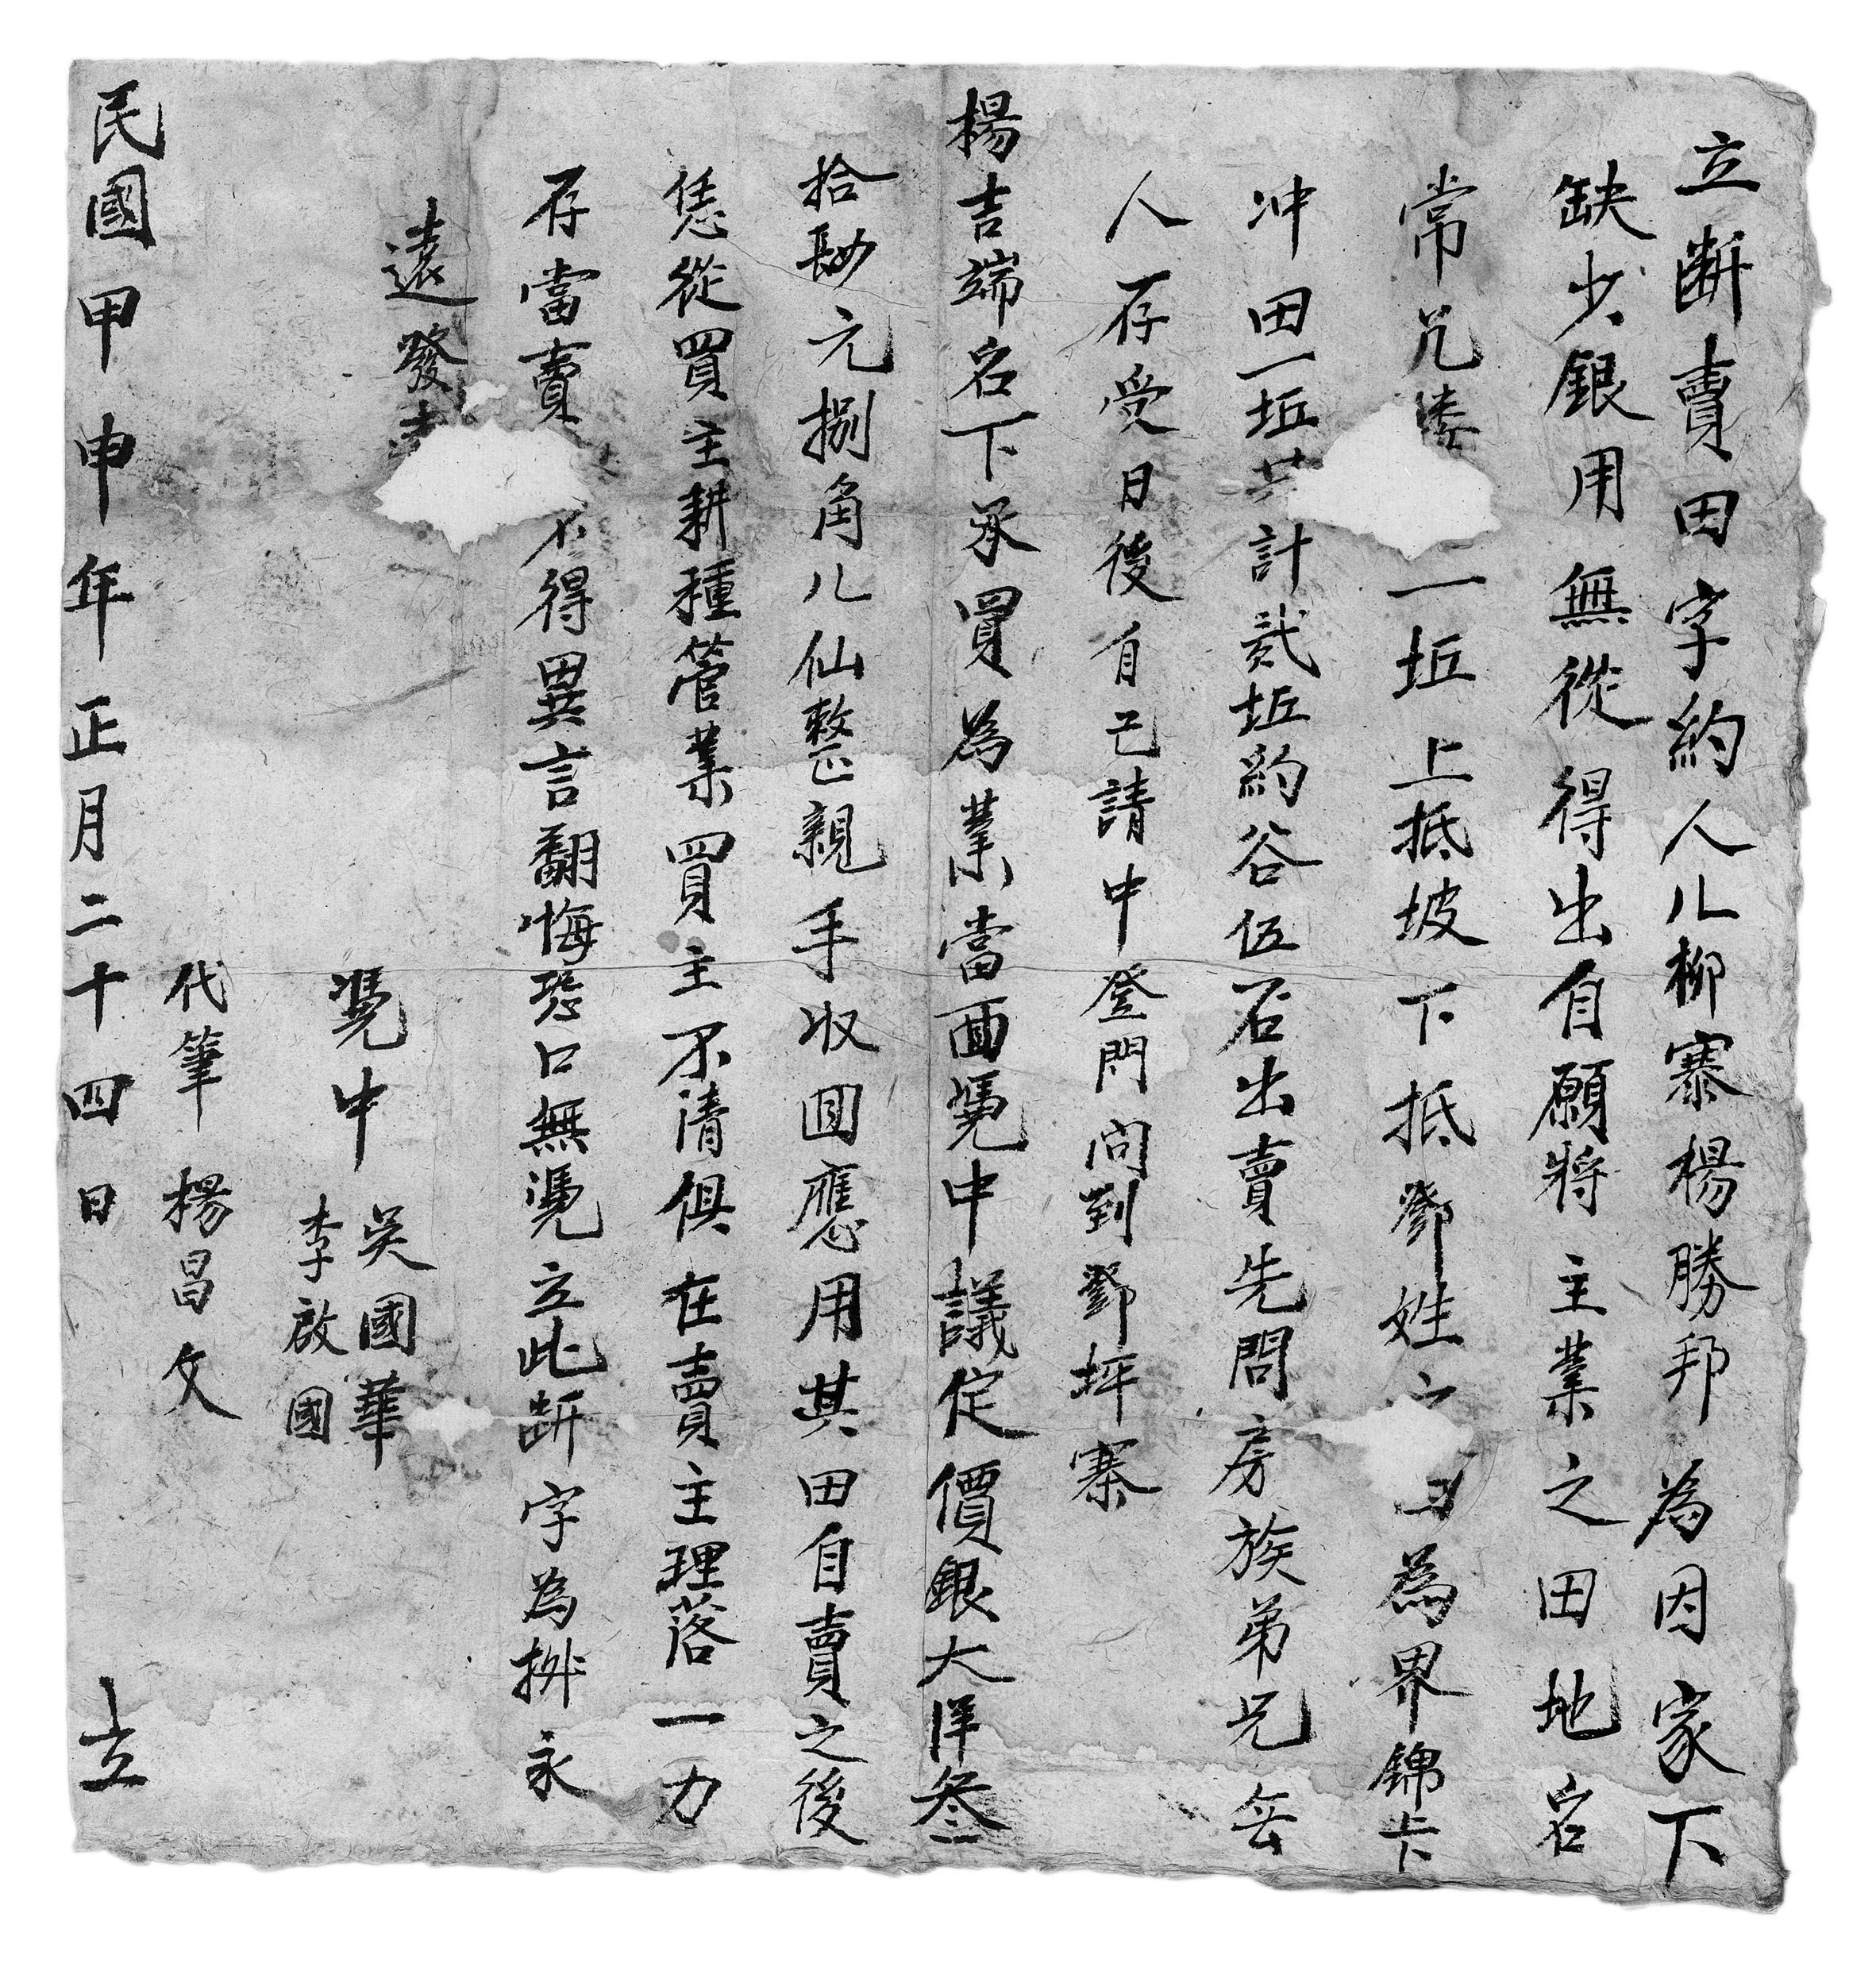 立断賣田字約人儿柳寨楊勝邦為因家下
缺少銀用無從得出自願將主業之田地名
常兄 一坵上抵坡下抵鄧姓 為界錦卡
冲田一坵共計貳坵約谷伍石出賣先問房族弟兄無
人存受日後自己請中登門問到鄧坪寨
楊吉端名下承買為業當面凴中議定價銀大洋叄
拾 元捌角八仙整親手收囬應用其田自賣之後
恁從買主耕種管業買主不清俱在賣主理落一力
存當賣 不得異言翻悔恐口無凴立此斷字為 永
遠發
凴中 吳國華
李啟國
代筆 楊昌文
民國甲申年正月二十四日 立